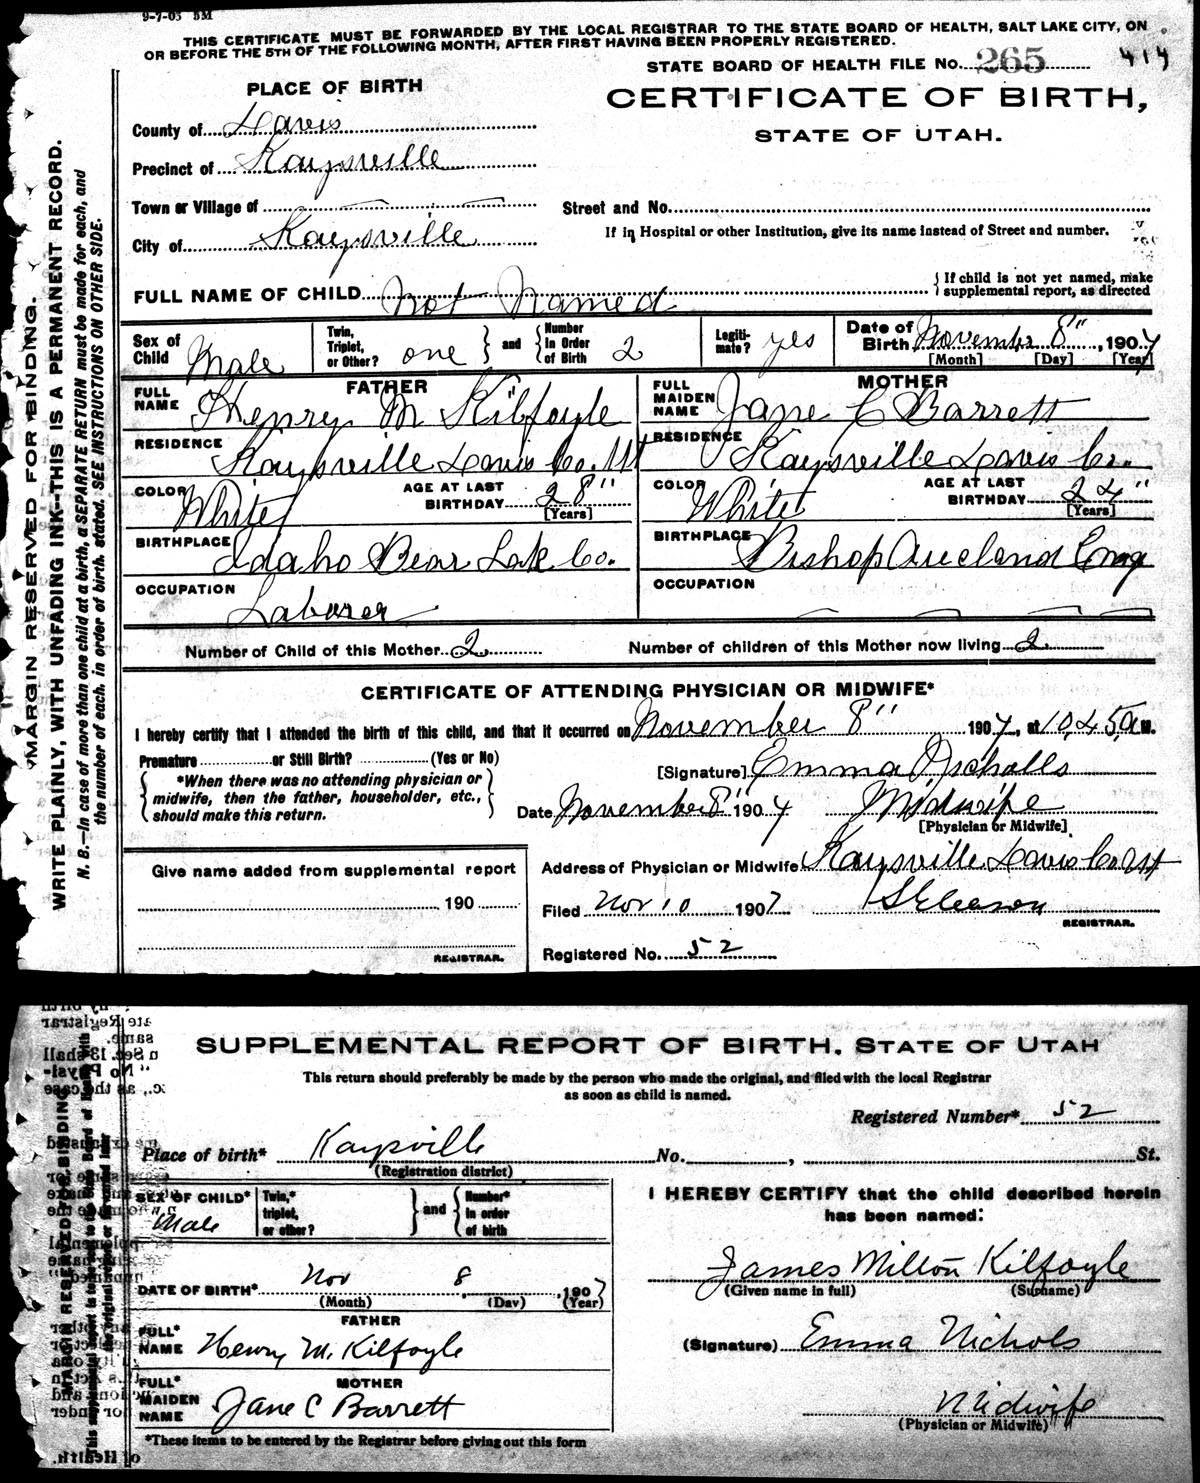 9-7-05 5M
THIS CERTIFICATE MUST BE FORWARDED BY THE LOCAL REGISTRAR TO THE STATE BOARD OF HEALTH, SALT LAKE CITY, ON
OR BEFORE THE 5TH OF THE FOLLOWING MONTH, AFTER FIRST HAVING BEEN PROPERLY REGISTERED.
STATE BOARD OF HEALTH FILE No. 265 414
MARGIN RESERVED FOR BINDING.
WRITE PLAINLY, WITH UNFADING INK—THIS IS A PERMANENT RECORD.
N. B.—In case of more than one child at a birth, a SEPARATE RETURN must be made for each, and
the number of each, in order of birth, stated. SEE INSTRUCTIONS ON OTHER SIDE.
PLACE OF BIRTH
CERTIFICATE OF BIRTH,
STATE OF UTAH.
County of Davis
Precinct of Kaysville
Town or Village of
Street and No.
City of Kaysville
If in Hospital or other Institution, give its name instead of Street and number.
FULL NAME OF CHILD Not Named { If child is not yet named, make
supplemental report, as directed
Sex of Child Male
Twin, Triplet, or Other? one } and { Number in Order of Birth 2
Legitimate? yes
Date of Birth November 8", 1907
[Month] [Day] [Year]
FATHER
FULL NAME Henry M Kilfoyle
RESIDENCE Kaysville Davis Co. Ut
COLOR White AGE AT LAST BIRTHDAY 28" [Years]
BIRTHPLACE Idaho Bear Lake Co.
OCCUPATION Laborer
MOTHER
FULL MAIDEN NAME Jane C Barrett
RESIDENCE Kaysville Davis Co.
COLOR White AGE AT LAST BIRTHDAY 24" [Years]
BIRTHPLACE Bishop Auckland Eng
OCCUPATION
Number of Child of this Mother 2 Number of children of this Mother now living 2
CERTIFICATE OF ATTENDING PHYSICIAN OR MIDWIFE*
I hereby certify that I attended the birth of this child, and that it occurred on November 8" 1907, at 10.45 a.m.
Premature or Still Birth? (Yes or No)
{ *When there was no attending physician or
midwife, then the father, householder, etc.,
should make this return. }
[Signature] Emma Nicholls
Date November 8" 1907 Midwife
[Physician or Midwife]
Give name added from supplemental report
190
REGISTRAR.
Address of Physician or Midwife Kaysville Davis Co Ut
Filed Nov 10 1907
REGISTRAR.
Registered No. 52
SUPPLEMENTAL REPORT OF BIRTH, STATE OF UTAH
This return should preferably be made by the person who made the original, and filed with the local Registrar
as soon as child is named.
Registered Number* 52
Place of birth* Kaysville No. , St.
(Registration district)
MARGIN RESERVED FOR BINDING
SEX OF CHILD* Male
Twin,* triplet, or other? } and { Number* in order of birth
DATE OF BIRTH* Nov 8, 1907
(Month) (Day) (Year)
FATHER
FULL* NAME Henry M. Kilfoyle
MOTHER
FULL* MAIDEN NAME Jane C Barrett
*These items to be entered by the Registrar before giving out this form
I HEREBY CERTIFY that the child described herein
has been named:
James Milton Kilfoyle
(Given name in full) (Surname)
(Signature) Emma Nichols
Midwife
(Physician or Midwife)